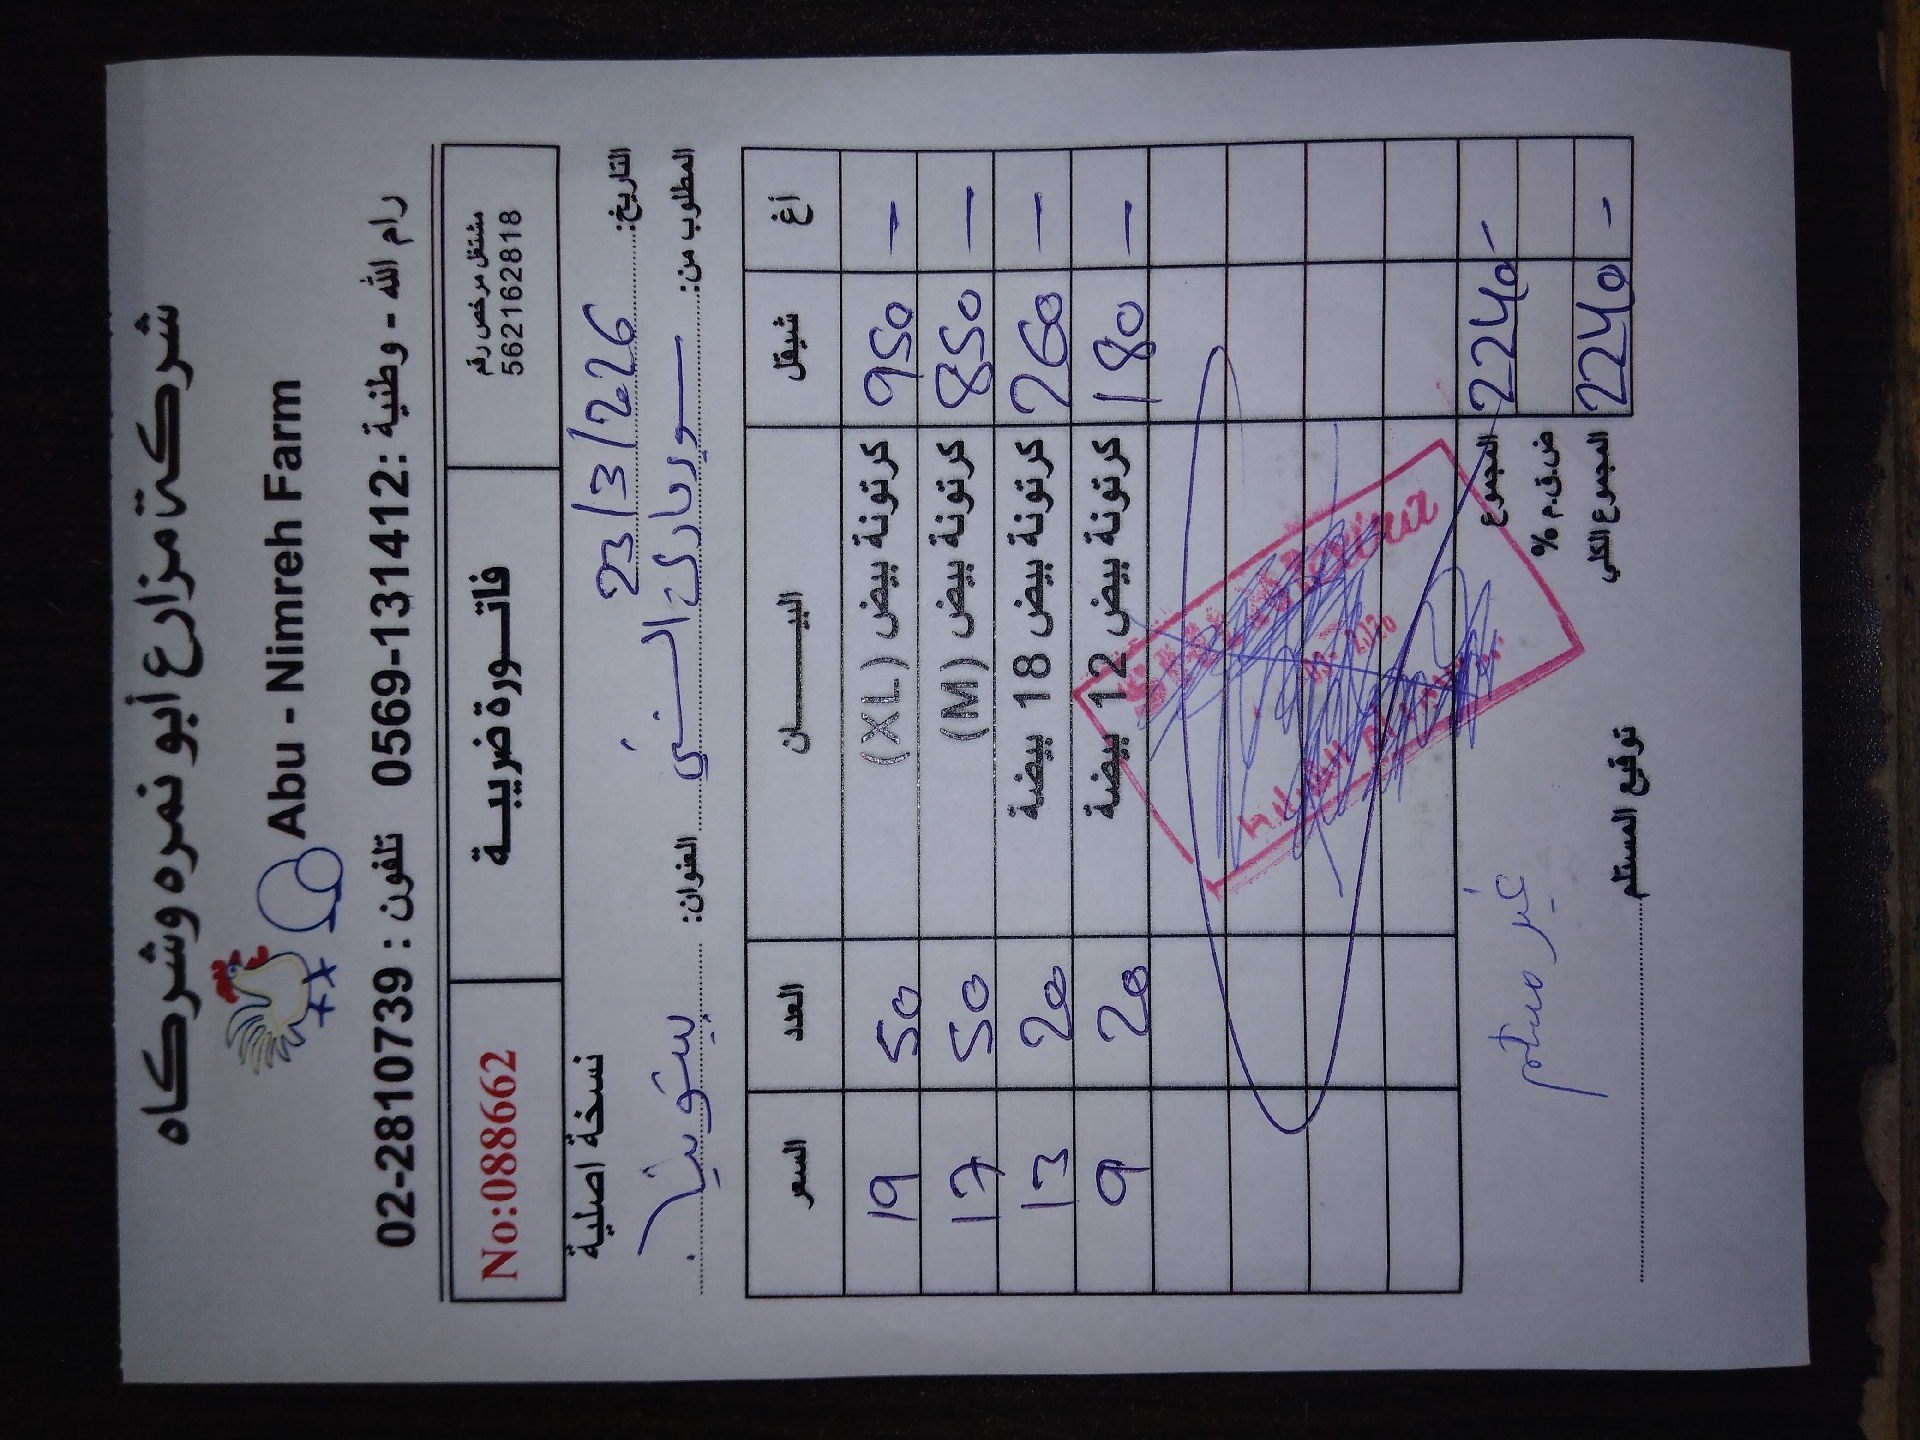 شركة مزارع أبو نمره وشركاه
Abu - Nimreh Farm
رام الله - وطنية : 0569-131412 تلفون : 02-2810739
مشتغل مرخص رقم
562162818
فاتـــورة ضريبيــة
No:088662
التاريخ: 23/3/2026
نسخة اصلية
المطلوب من: سوبرماركت السني العنوان: بيتونيا
أغ شيقل البيـــــــان العدد السعر
- 950 كرتونة بيض (XL) 50 19
- 850 كرتونة بيض (M) 50 17
- 260 كرتونة بيض 18 بيضة 20 13
- 180 كرتونة بيض 12 بيضة 20 9
- 2240 المجموع
ض.ق.م %
- 2240 المجموع الكلي
غير مستلم
توقيع المستلم